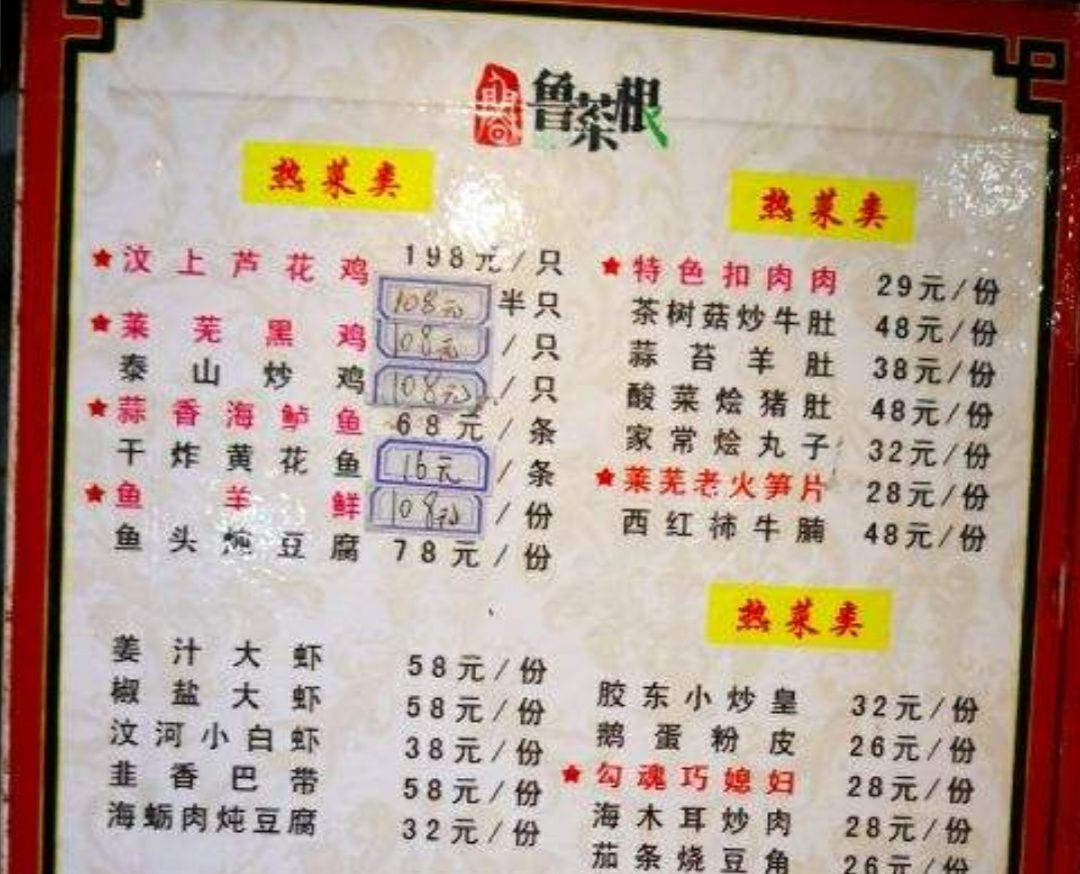 閣 鲁菜根
热菜类
★汶上芦花鸡 198元/只
108元 半只
★莱芜黑鸡 108元/只
泰山炒鸡 108元/只
★蒜香海鲈鱼 68元/条
干炸黄花鱼 16元/条
★鱼羊鲜 108元/份
鱼头炖豆腐 78元/份
姜汁大虾 58元/份
椒盐大虾 58元/份
汶河小白虾 38元/份
韭香巴带 58元/份
海蛎肉炖豆腐 32元/份
热菜类
★特色扣肉肉 29元/份
茶树菇炒牛肚 48元/份
蒜苔羊肚 38元/份
酸菜烩猪肚 48元/份
家常烩丸子 32元/份
★莱芜老火笋片 28元/份
西红柿牛腩 48元/份
热菜类
胶东小炒皇 32元/份
鹅蛋粉皮 26元/份
★勾魂巧媳妇 28元/份
海木耳炒肉 28元/份
茄条烧豆角 26元/份